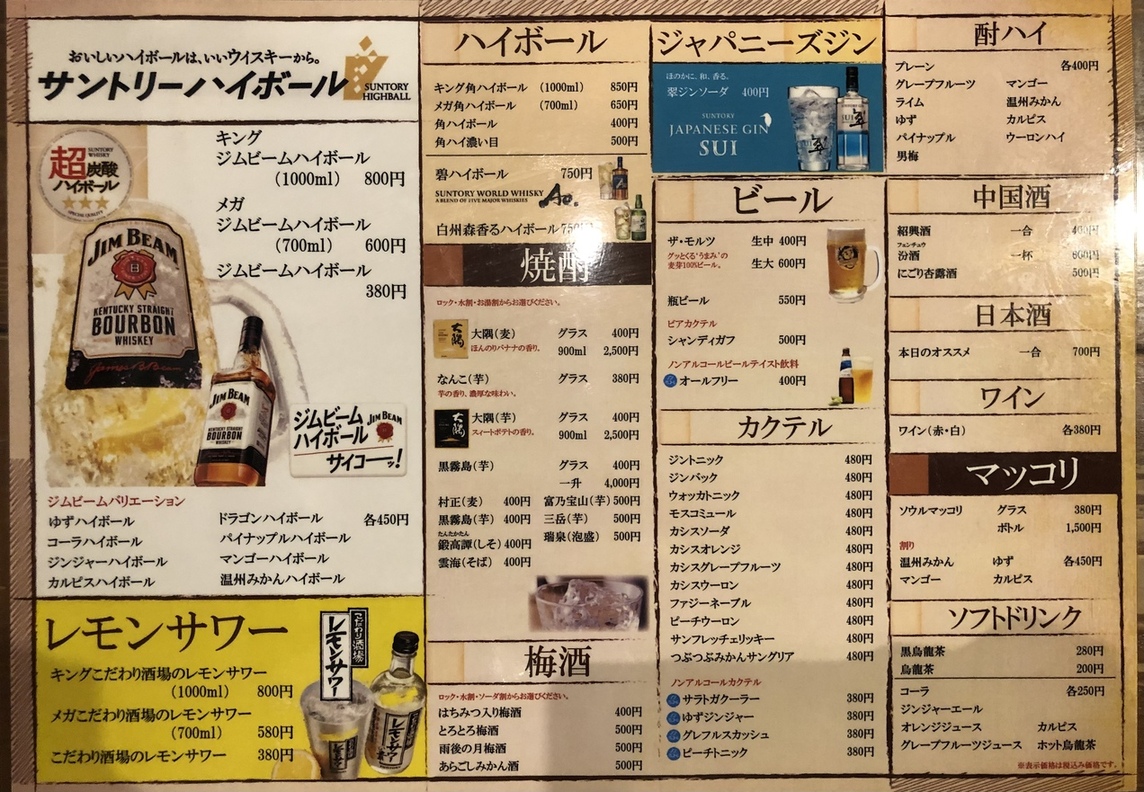 おいしいハイボールは、いいウイスキーから。
サントリーハイボール
SUNTORY
HIGHBALL
超炭酸
ハイボール
SUNTORY
WHISKY
キング
ジムビームハイボール
（1000ml） 800円
メガ
ジムビームハイボール
（700ml） 600円
ジムビームハイボール
380円
JIM BEAM
KENTUCKY STRAIGHT
BOURBON
WHISKEY
JIM BEAM
KENTUCKY STRAIGHT
BOURBON
ジムビーム
ハイボール
JIM BEAM
サイコーッ!
ジムビームバリエーション
ゆずハイボール ドラゴンハイボール 各450円
コーラハイボール パイナップルハイボール
ジンジャーハイボール マンゴーハイボール
カルピスハイボール 温州みかんハイボール
レモンサワー
キングこだわり酒場のレモンサワー
（1000ml） 800円
メガこだわり酒場のレモンサワー
（700ml） 580円
こだわり酒場のレモンサワー 380円
こだわり酒場の
レモンサワー
ハイボール
キング角ハイボール （1000ml） 850円
メガ角ハイボール （700ml） 650円
角ハイボール 400円
角ハイ濃い目 500円
碧ハイボール 750円
SUNTORY WORLD WHISKY
A BLEND OF FIVE MAJOR WHISKIES
Ao.
白州森香るハイボール 750円
焼酎
ロック・水割・お湯割からお選びください。
大隅（麦） グラス 400円
ほんのりバナナの香り。 900ml 2,500円
なんこ（芋） グラス 380円
芋の香り、濃厚な味わい。
大隅（芋） グラス 400円
スィートポテトの香り。 900ml 2,500円
黒霧島（芋） グラス 400円
一升 4,000円
村正（麦） 400円 富乃宝山（芋） 500円
黒霧島（芋） 400円 三岳（芋） 500円
たんたかたん
鍛高譚（しそ） 400円 瑞泉（泡盛） 500円
雲海（そば） 400円
梅酒
ロック・水割・ソーダ割からお選びください。
はちみつ入り梅酒 400円
とろとろ梅酒 500円
雨後の月梅酒 500円
あらごしみかん酒 500円
ジャパニーズジン
ほのかに、和、香る。
翠ジンソーダ 400円
SUNTORY
JAPANESE GIN
SUI
ビール
ザ・モルツ 生中 400円
グッとくる“うまみ”の
麦芽100%ビール。 生大 600円
瓶ビール 550円
ビアカクテル
シャンディガフ 500円
ノンアルコールビールテイスト飲料
オールフリー 400円
カクテル
ジントニック 480円
ジンバック 480円
ウォッカトニック 480円
モスコミュール 480円
カシスソーダ 480円
カシスオレンジ 480円
カシスグレープフルーツ 480円
カシスウーロン 480円
ファジーネーブル 480円
ピーチウーロン 480円
サンフレッチェリッキー 480円
つぶつぶみかんサングリア 480円
ノンアルコールカクテル
サラトガクーラー 380円
ゆずジンジャー 380円
グレフルスカッシュ 380円
ピーチトニック 380円
酎ハイ
プレーン 各400円
グレープフルーツ マンゴー
ライム 温州みかん
ゆず カルピス
パイナップル ウーロンハイ
男梅
中国酒
紹興酒 一合 400円
フェンチュウ
汾酒 一杯 600円
にごり杏露酒 500円
日本酒
本日のオススメ 一合 700円
ワイン
ワイン（赤・白） 各380円
マッコリ
ソウルマッコリ グラス 380円
ボトル 1,500円
割り
温州みかん ゆず 各450円
マンゴー カルピス
ソフトドリンク
黒烏龍茶 280円
烏龍茶 200円
コーラ 各250円
ジンジャーエール
オレンジジュース カルピス
グレープフルーツジュース ホット烏龍茶
※表示価格は税込み価格です。